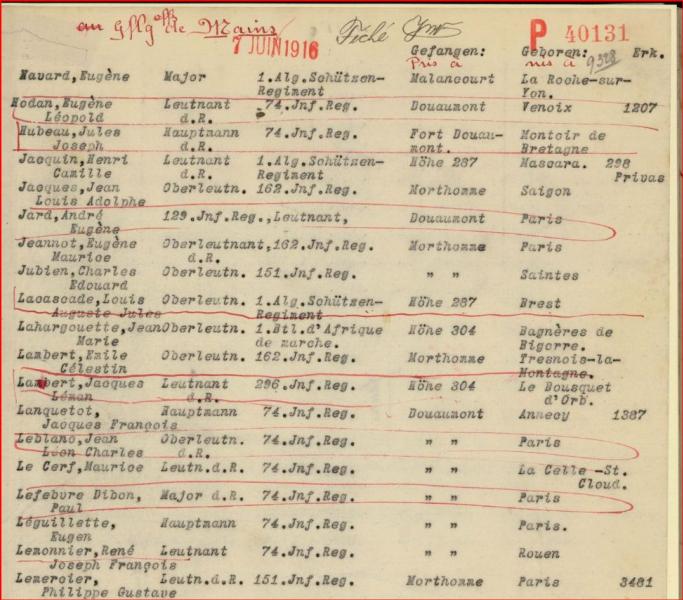 au Gfflg<sup>en</sup> de Mainz
7 JUIN 1916 Fiché P 40131
Gefangen: Geboren: Erk.
Pris à nés à 9328
Havard,Eugène Major 1.Alg.Schützen- Malancourt La Roche-sur-
Regiment Yon.
Hodan,Eugène Leutnant 74.Jnf.Reg. Douaumont Venoix 1207
Léopold d.R.
Hubeau,Jules Hauptmann 74.Jnf.Reg. Fort Douau- Montoir de
Joseph d.R. mont. Bretagne
Jacquin,Henri Leutnant 1.Alg.Schützen- Höhe 287 Mascara. 298
Camille d.R. Regiment Privas
Jacques,Jean Oberleutn. 162.Jnf.Reg. Morthomme Saigon
Louis Adolphe
Jard,André 129.Jnf.Reg.,Leutnant, Douaumont Paris
Eugène
Jeannot,Eugène Oberleutnant,162.Jnf.Reg. Morthomme Paris
Maurice d.R.
Jubien,Charles Oberleutn. 151.Jnf.Reg. " " Saintes
Edouard
Lacascade,Louis Oberleutn. 1.Alg.Schützen- Höhe 287 Brest
Auguste Jules Regiment
Lahargouette,Jean Oberleutn. 1.Btl.d'Afrique Höhe 304 Bagnères de
Marie de marche. Bigorre.
Lambert,Emile Oberleutn. 162.Jnf.Reg. Morthomme Tresnois-la-
Célestin Montagne.
Lambert,Jacques Leutnant 296.Jnf.Reg. Höhe 304 Le Bousquet
Léman d.R. d'Orb.
Lanquetot, Hauptmann 74.Jnf.Reg. Douaumont Annecy 1387
Jacques François
Leblanc,Jean Oberleutn. 74.Jnf.Reg. " " Paris
Léon Charles d.R.
Le Cerf,Maurice Leutn.d.R. 74.Jnf.Reg. " " La Celle -St.
Cloud.
Lefebvre Dibon, Major d.R. 74.Jnf.Reg. " " Paris
Paul
Léguillette, Hauptmann 74.Jnf.Reg. " " Paris.
Eugen
Lemonnier,René Leutnant 74.Jnf.Reg. " " Rouen
Joseph François
Lemercier, Leutn.d.R. 151.Jnf.Reg. Morthomme Paris 3481
Philippe Gustave